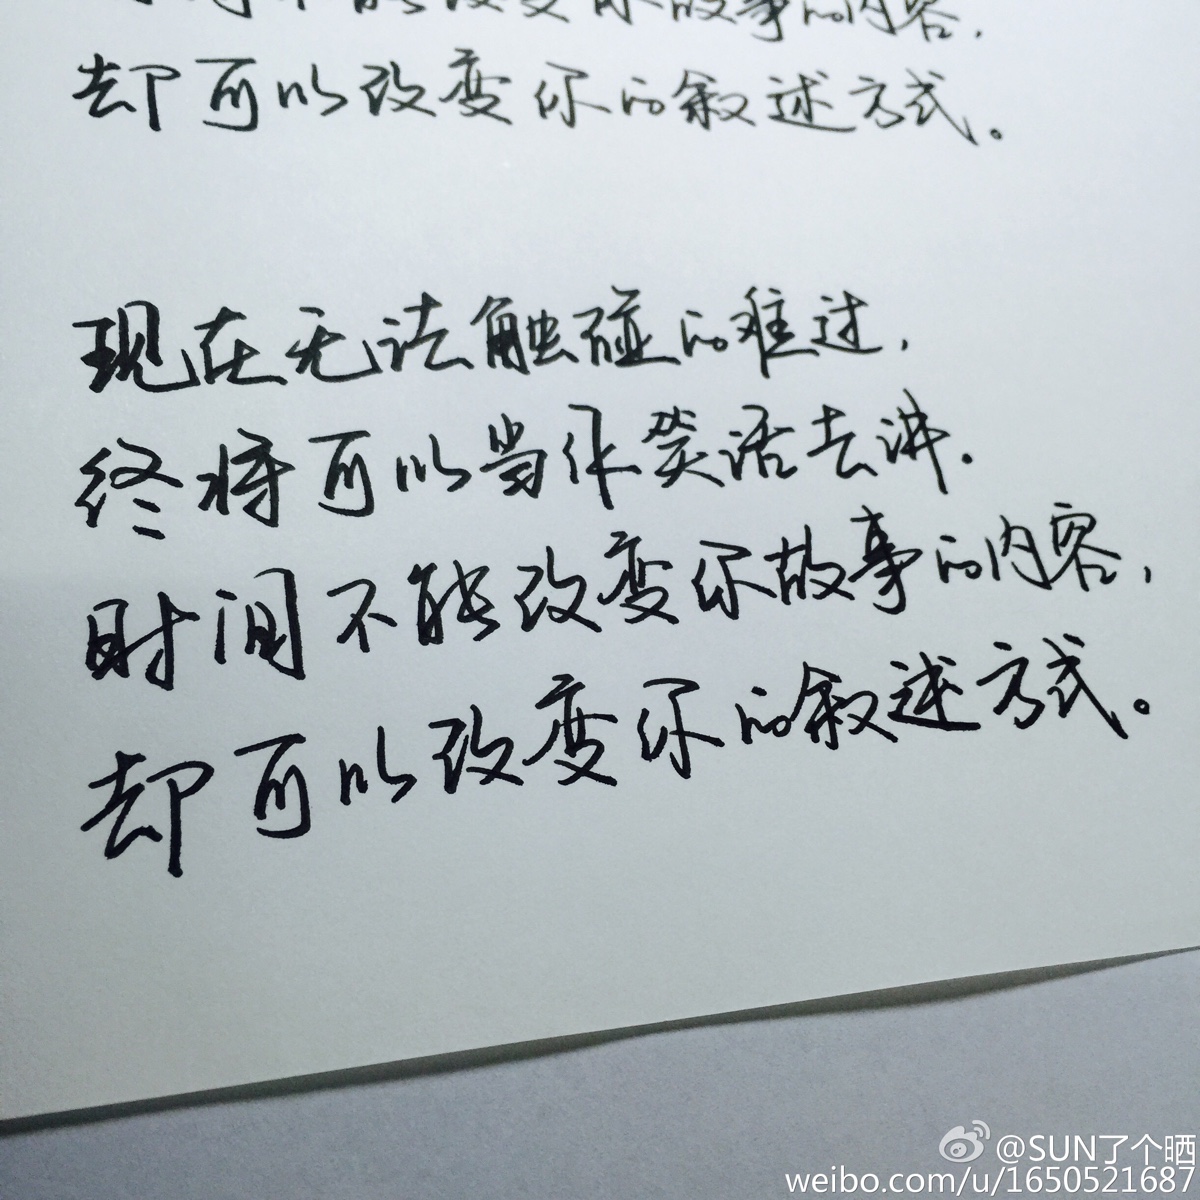 改变你故事的内容，
却可以改变你的叙述方式。
现在无法触碰的难过，
终将可以当作笑话去讲.
时间不能改变你故事的内容，
却可以改变你的叙述方式。
@SUN了个晒
weibo.com/u/1650521687